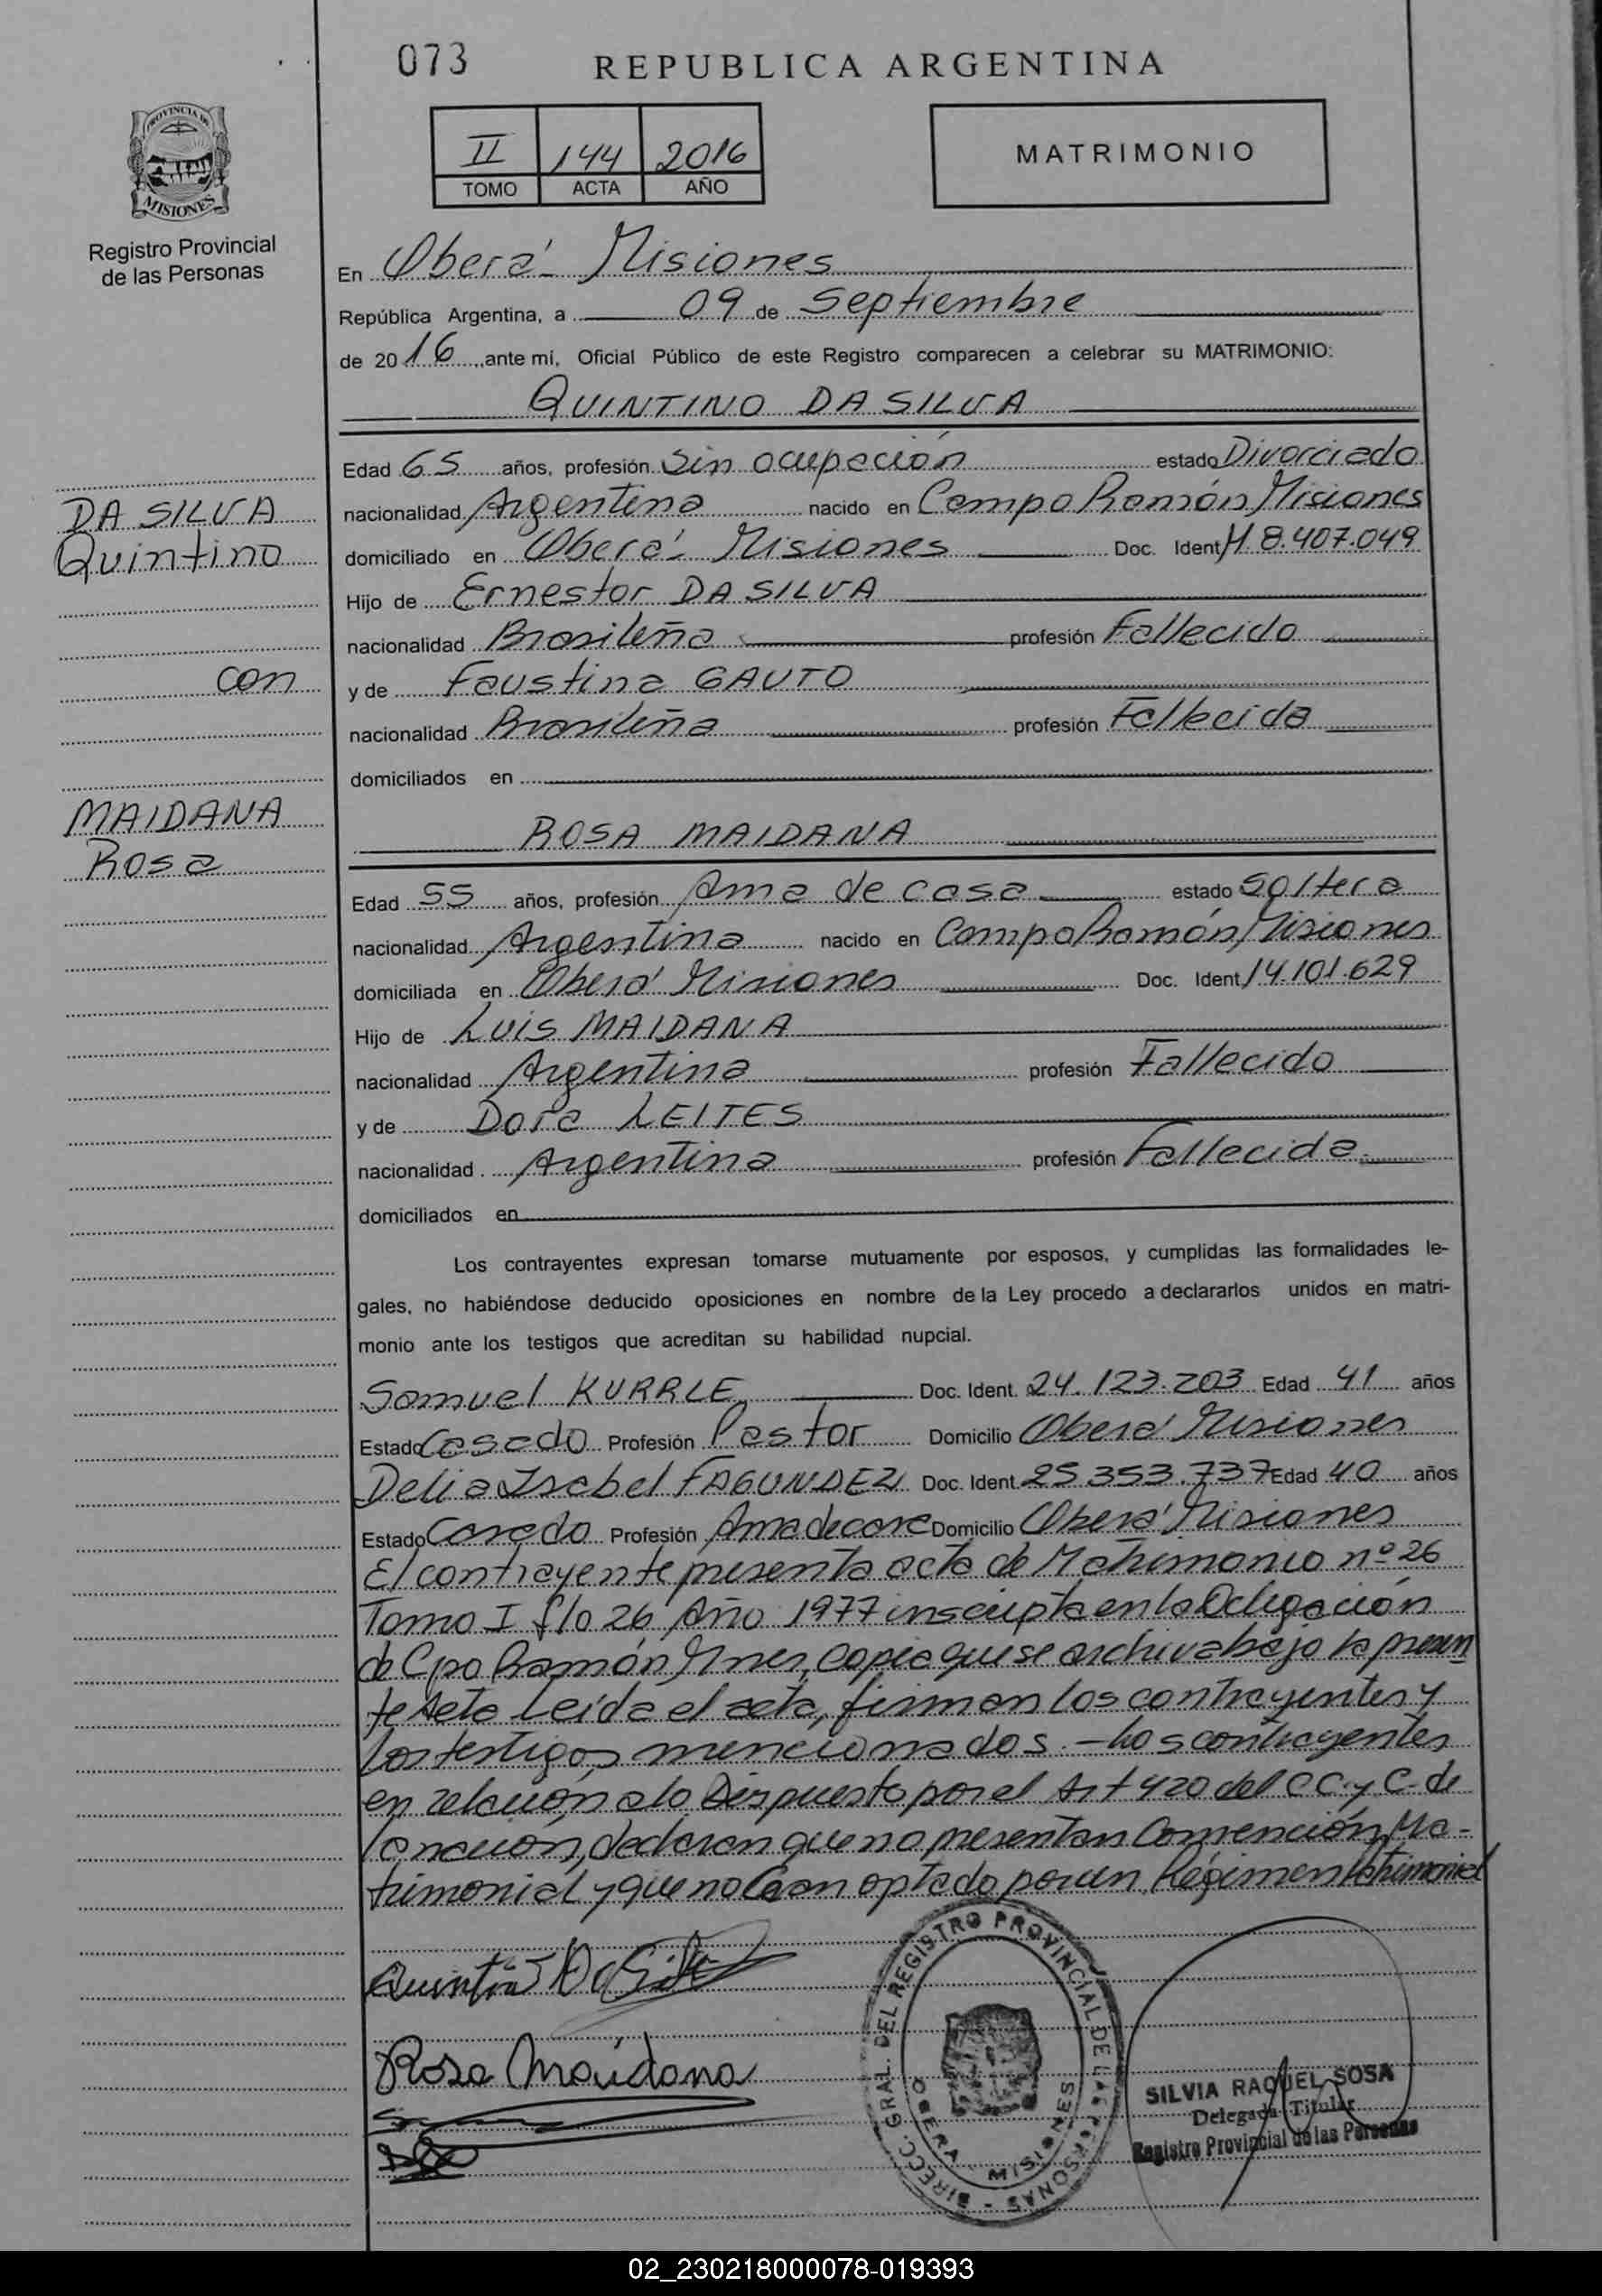 073
REPUBLICA ARGENTINA
II 144 2016
TOMO ACTA AÑO
MATRIMONIO
PROVINCIA DE
MISIONES
Registro Provincial
de las Personas
En Oberá - Misiones
República Argentina, a 09 de Septiembre
de 2016, ante mi, Oficial Público de este Registro comparecen a celebrar su MATRIMONIO:
QUINTINO DA SILVA
Edad 65 años, profesión Sin ocupación estado Divorciado
DA SILVA
nacionalidad Argentina nacido en Campo Ramón Misiones
Quintino
domiciliado en Oberá - Misiones Doc. Ident M 8.407.049
Hijo de Ernestor DA SILVA
nacionalidad Brasileña profesión Fallecido
con
y de Faustina GAUTO
nacionalidad Brasileña profesión Fallecida
domiciliados en
MAIDANA
ROSA MAIDANA
Rosa
Edad 55 años, profesión Ama de casa estado Soltera
nacionalidad Argentina nacido en Campo Ramón Misiones
domiciliada en Oberá Misiones Doc. Ident 14.101.629
Hijo de Luis MAIDANA
nacionalidad Argentina profesión Fallecido
y de Dora LEITES
nacionalidad Argentina profesión Fallecida
domiciliados en
Los contrayentes expresan tomarse mutuamente por esposos, y cumplidas las formalidades le-
gales, no habiéndose deducido oposiciones en nombre de la Ley procedo a declararlos unidos en matri-
monio ante los testigos que acreditan su habilidad nupcial.
Samuel KURRLE Doc. Ident. 24.123.203 Edad 41 años
Estado Casado Profesión Pastor Domicilio Oberá Misiones
Delia Isabel FAGUNDEZ Doc. Ident. 25.353.737 Edad 40 años
Estado Casado Profesión Ama de casa Domicilio Oberá Misiones
El contrayente presenta acta de Matrimonio nº 26
Tomo I flo 26 Año 1977 inscripta en la Delegación
de Cpo Ramón, Mnes, copia que se archiva bajo la presen
te Acta Leída el acta, firman los contrayentes y
los testigos mencionados. - Los contrayentes
en relación a lo Dispuesto por el Art 420 del C.C. y C. de
la nación, declaran que no presentan Convención Ma-
trimonial y que no han optado por un Régimen Patrimonial
Quintino Da Silva
Rosa Maidana
DIRECC. GRAL. DEL REGISTRO PROVINCIAL DE LAS PERSONAS
OBERA - MISIONES
SILVIA RAQUEL SOSA
Delegada Titular
Registro Provincial de las Personas
02_230218000078-019393